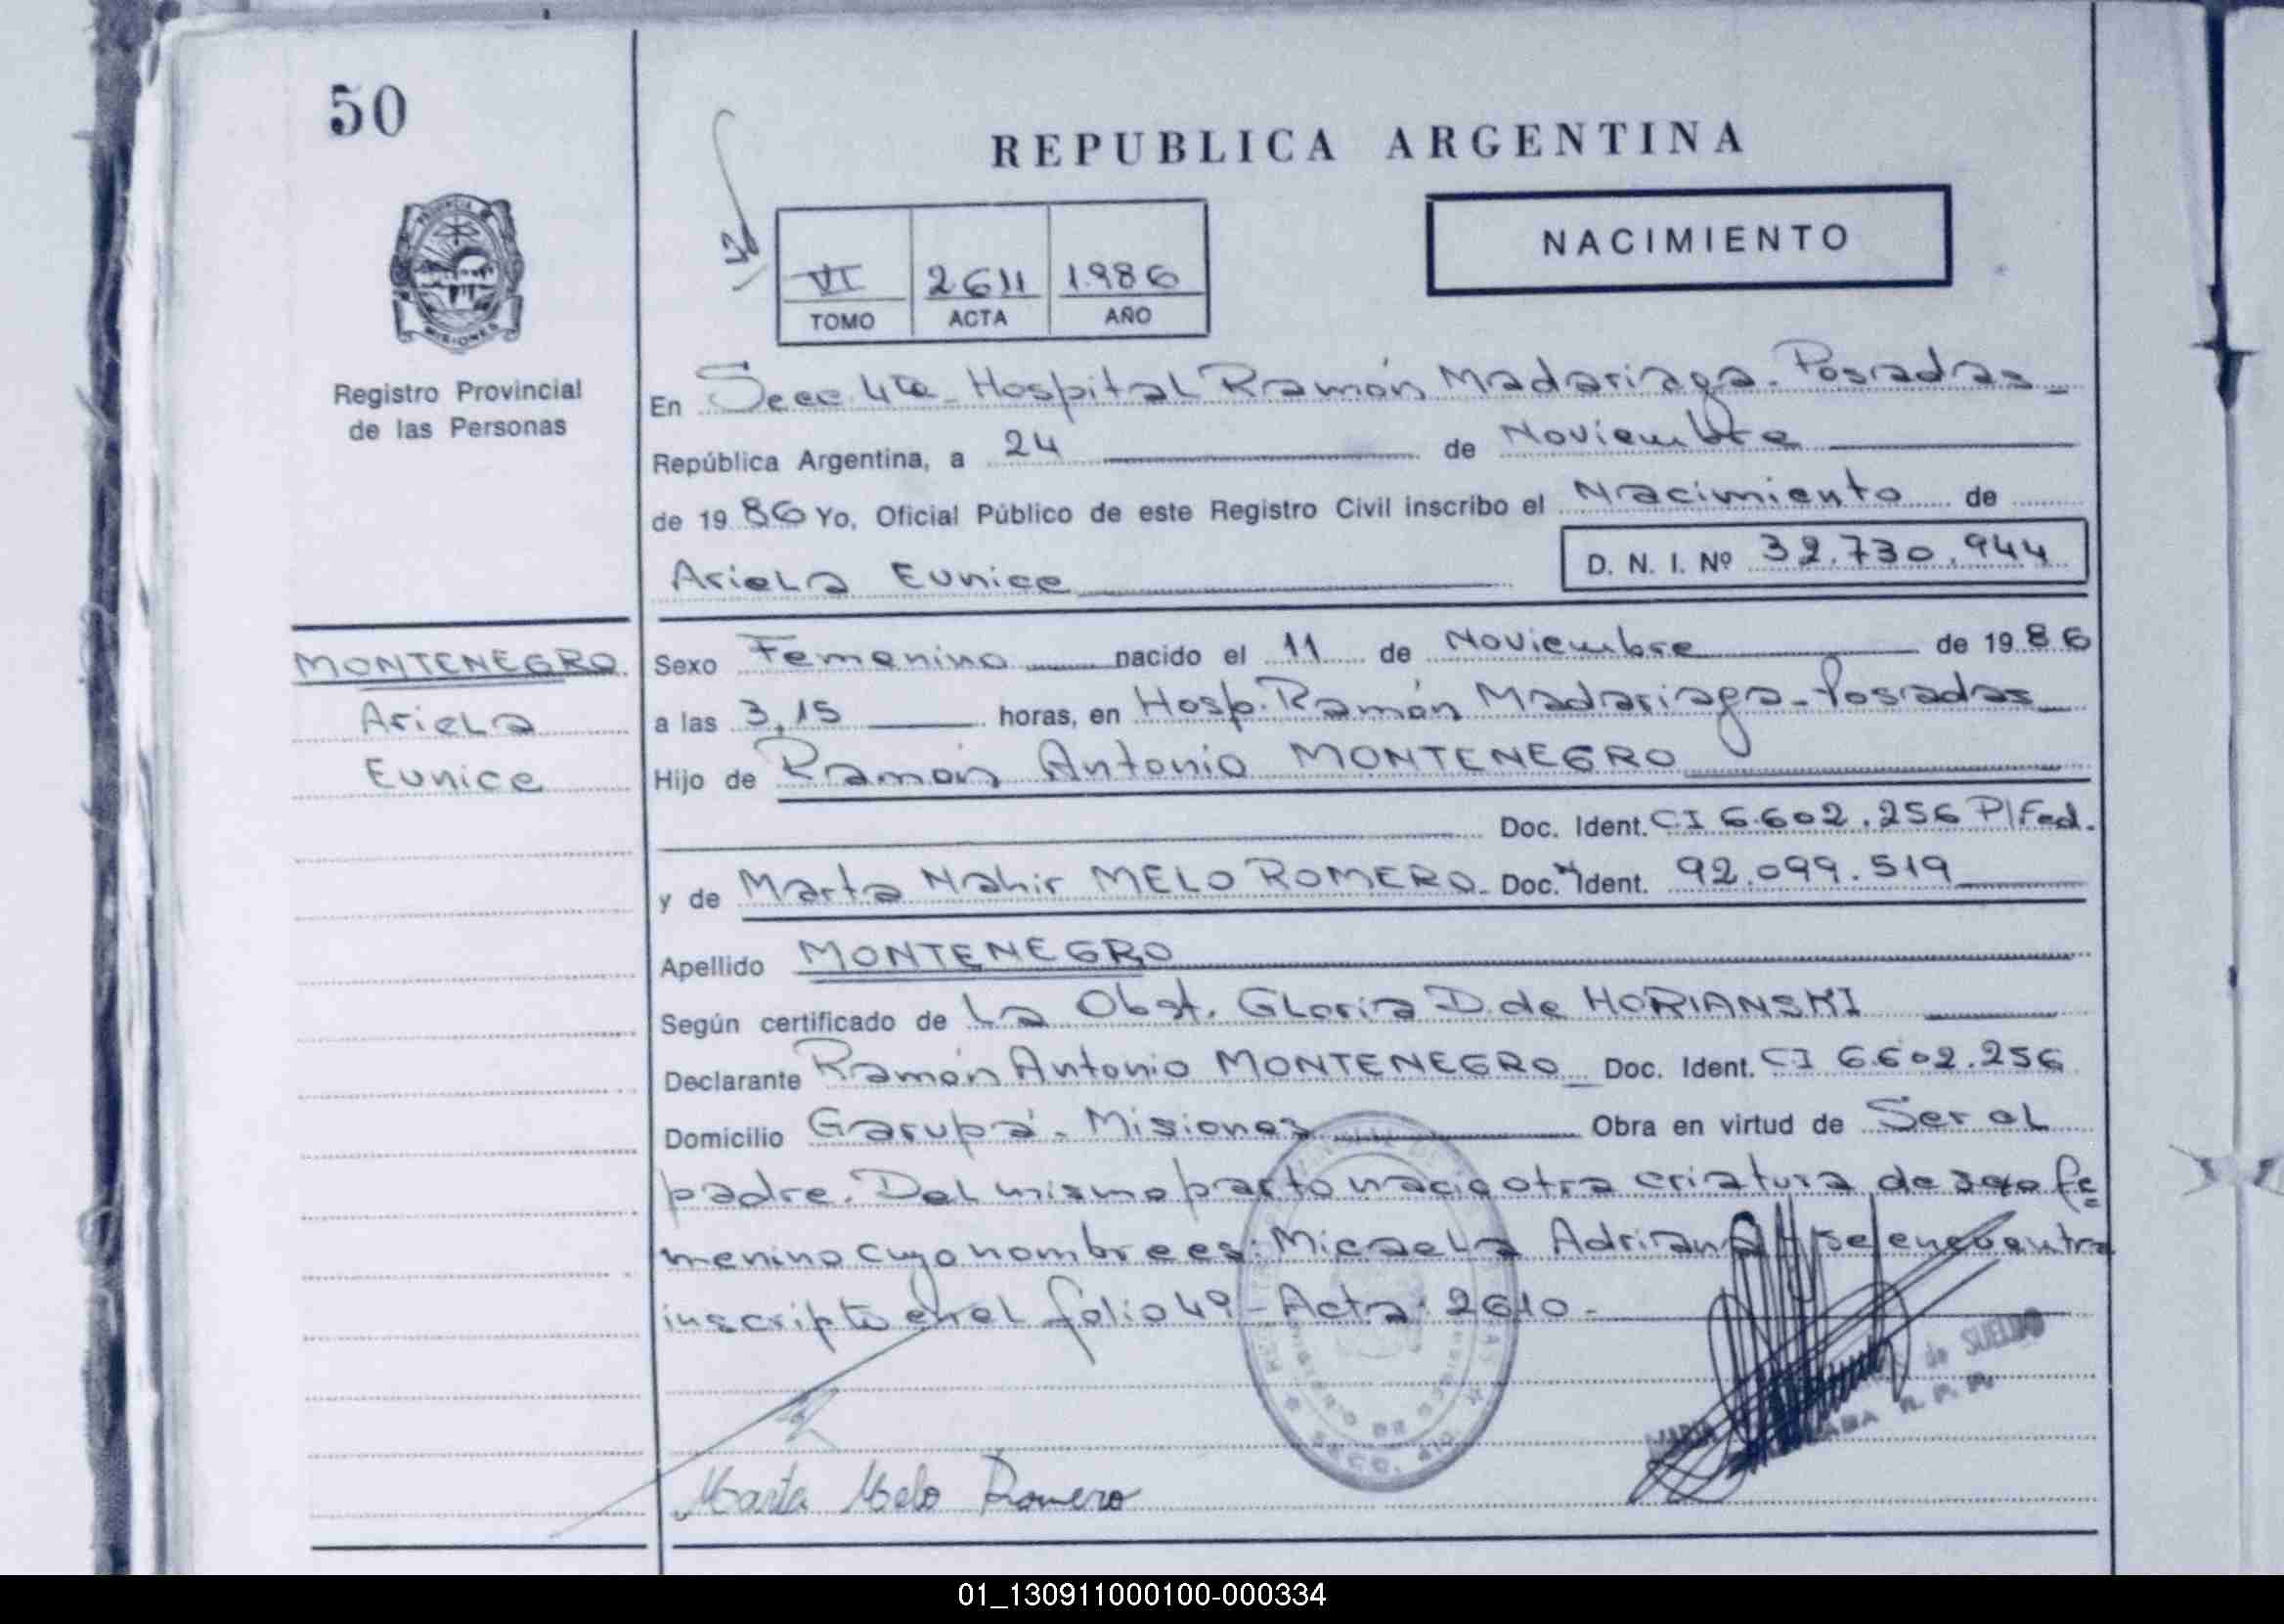 50
REPUBLICA ARGENTINA
NACIMIENTO
VI 2611 1986
TOMO ACTA AÑO
PROVINCIA
MISIONES
Registro Provincial
de las Personas
En Secc. 4ta - Hospital Ramón Madariaga - Posadas -
República Argentina, a 24 de Noviembre
de 1986 Yo, Oficial Público de este Registro Civil inscribo el Nacimiento de
D. N. I. Nº 32.730.944
Ariela Eunice
MONTENEGRO
Ariela
Eunice
Sexo Femenino nacido el 11 de Noviembre de 1986
a las 3,15 horas, en Hosp. Ramón Madariaga - Posadas
Hijo de Ramón Antonio MONTENEGRO
Doc. Ident. CI 6.602.256 P/Fed.
y de Marta Nahir MELO ROMERO - Doc. Ident. 92.099.519
Apellido MONTENEGRO
Según certificado de La Obst. Gloria D. de HORIANSKI
Declarante Ramón Antonio MONTENEGRO Doc. Ident. CI 6.602.256
Domicilio Garupá - Misiones Obra en virtud de Ser el
padre. Del mismo parto nacio otra criatura de sexo fe
menino cuyo nombre es: Micaela Adriana y se encuentra
inscripto en el folio 49 - Acta: 2610 -
SECC. 4ta
de SUELDO
R. P. P.
Marta Melo Romero
01_130911000100-000334